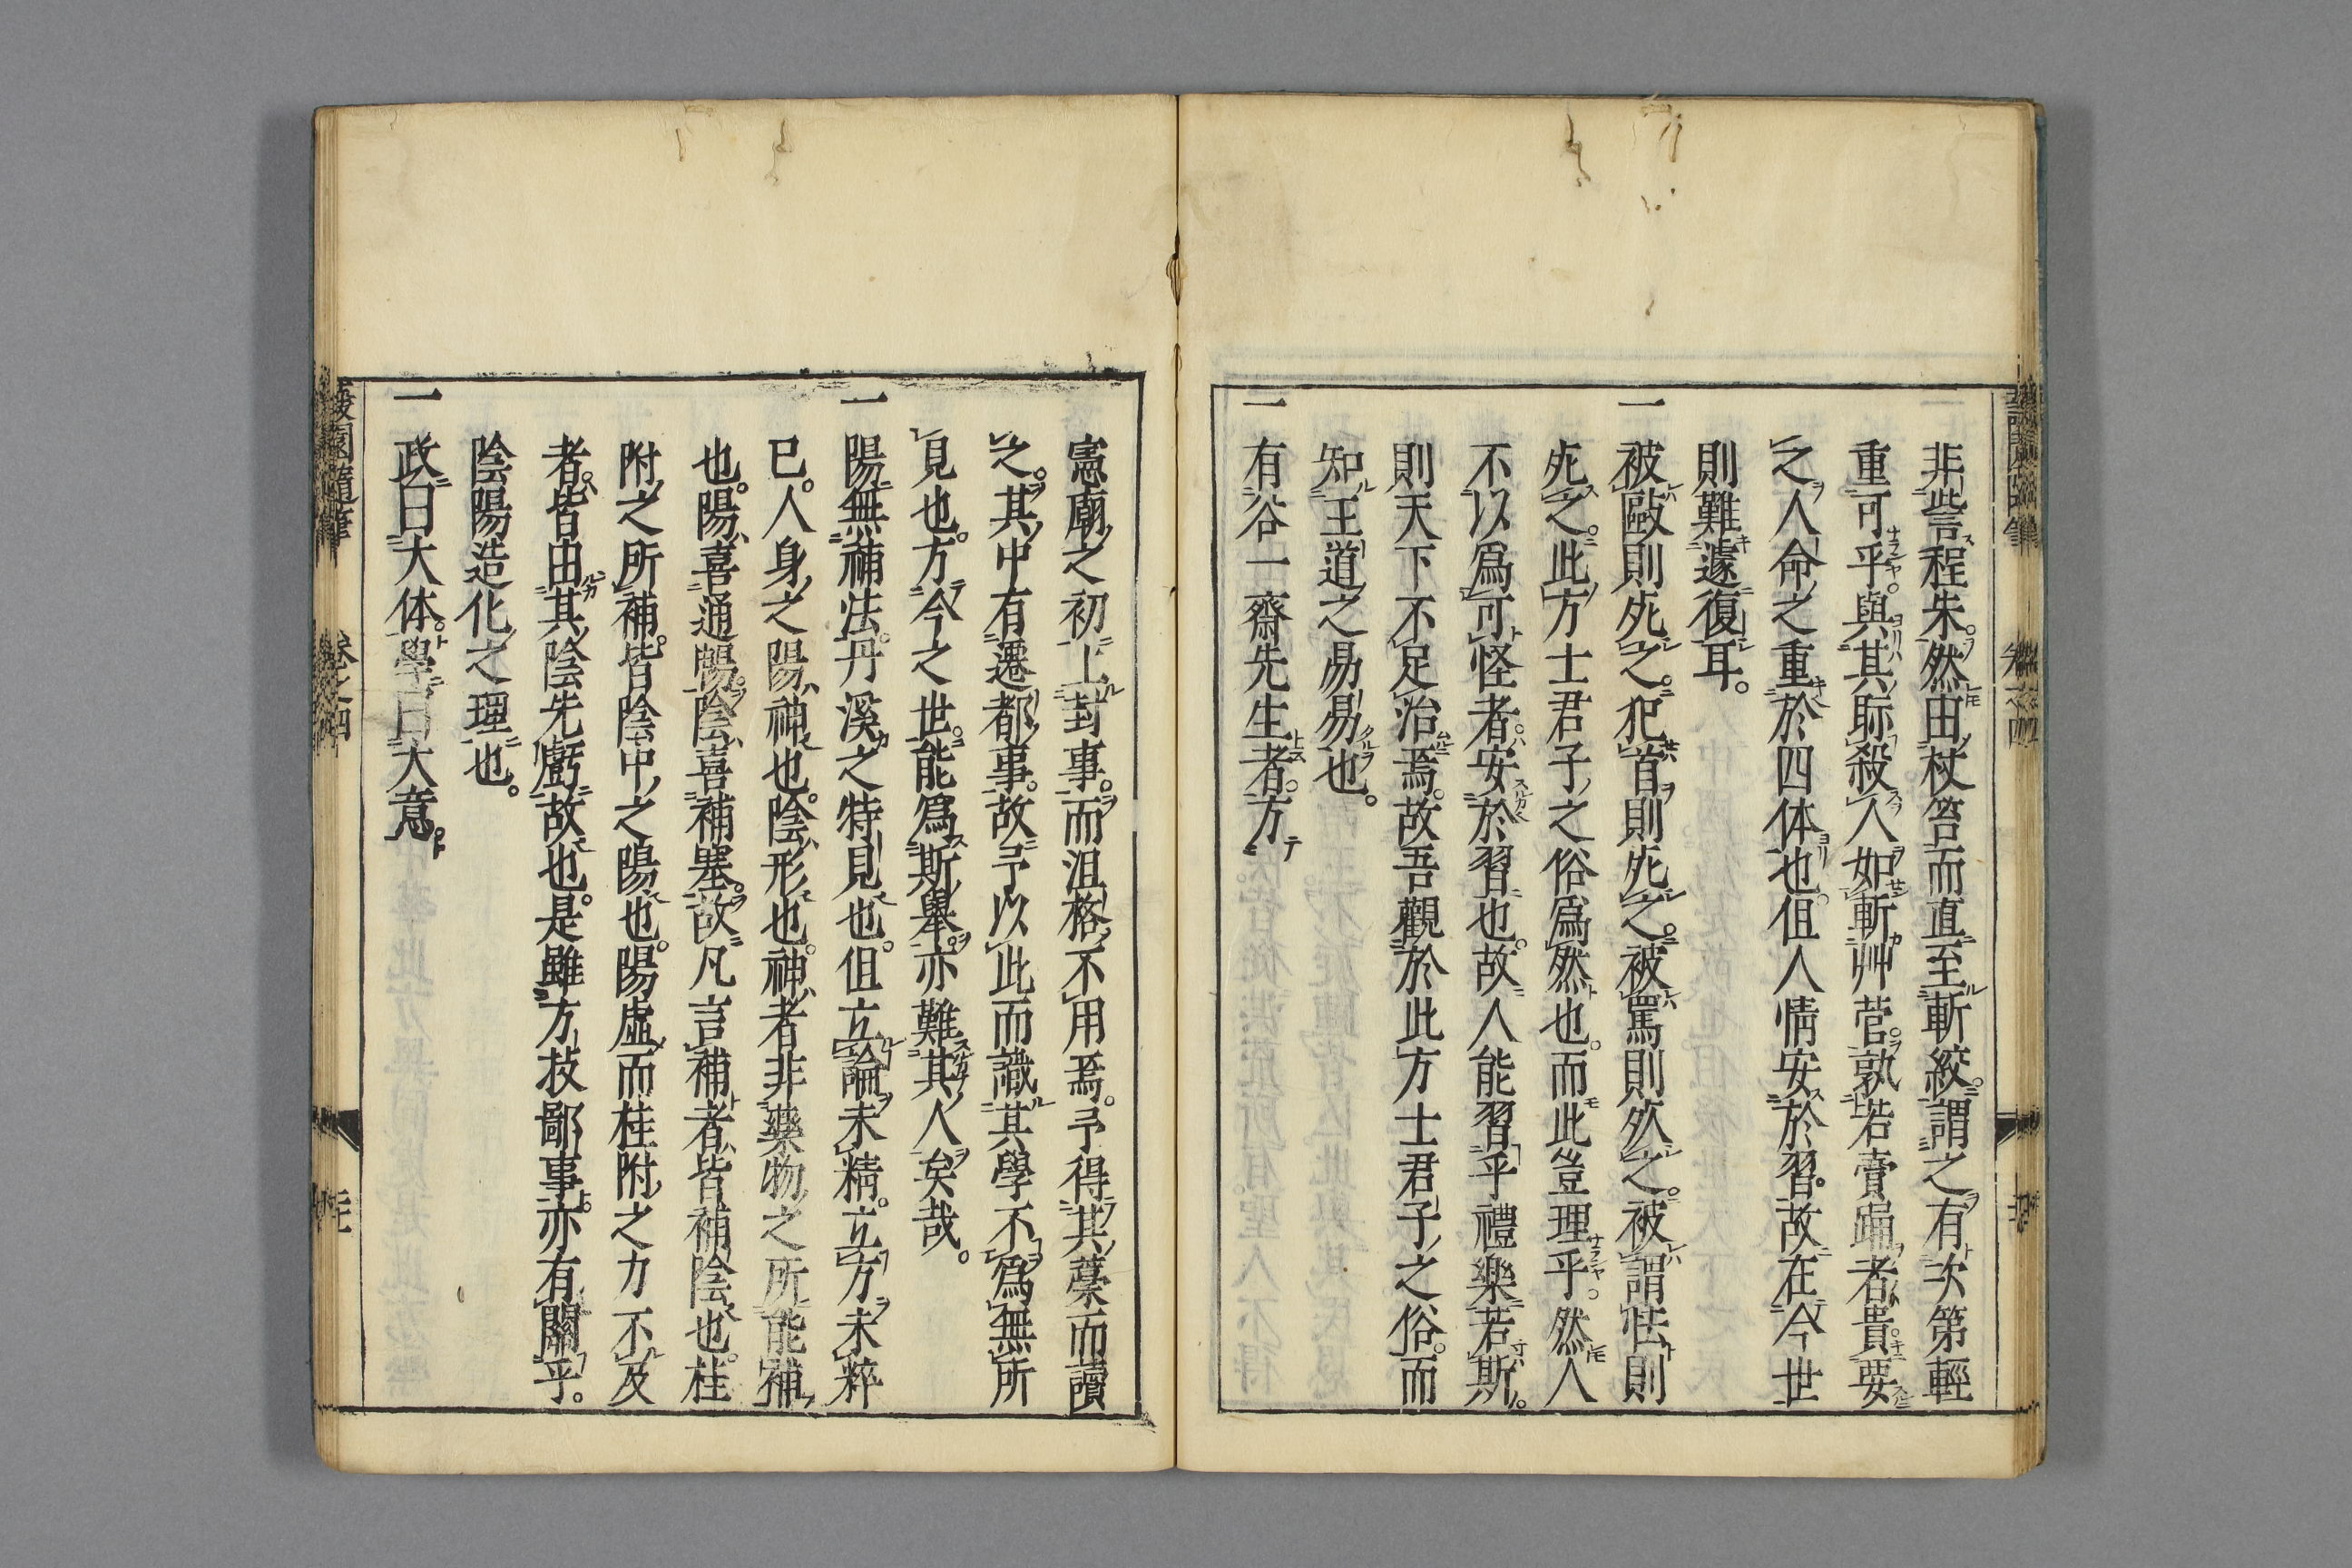 非訾程朱。然由杖笞而直至斬絞。謂之有次第輕
重可乎。與其聹殺人如斬艸菅。孰若賣踊者貴。要
之人命之重於四体也。但人情安於習。故在今世
則難遽復耳。
一被毆則死之。犯首則死之。被罵則然之。被謂怯則
死之。此方士君子之俗爲然也。而此豈理乎。然人
不以爲可怪者。安於習也。故人能習乎禮樂若斯。
則天下不足治焉。故吾觀於此方士君子之俗。而
知王道之易易也。
一有谷一齋先生者。方
憲廟之初上封事。而沮格不用焉。予得其藁而讀
之。其中有遷都事。故予以此而識其學不爲無所
見也。方今之世。能爲斯舉。亦難其人矣哉。
一陽無補法。丹溪之特見也。但立論未精。立方未粹
已。人身之陽神也。陰形也。神者非藥物之所能補
也。陽喜通暢。陰喜補塞。故凡言補者。皆補陰也。桂
附之所補。皆陰中之陽也。陽虛而桂附之力不及
者。皆由其陰先虧故也。是雖方技鄙事。亦有關乎
陰陽造化之理也。
一政曰大体。學曰大意。
蘐園隨筆 卷之四